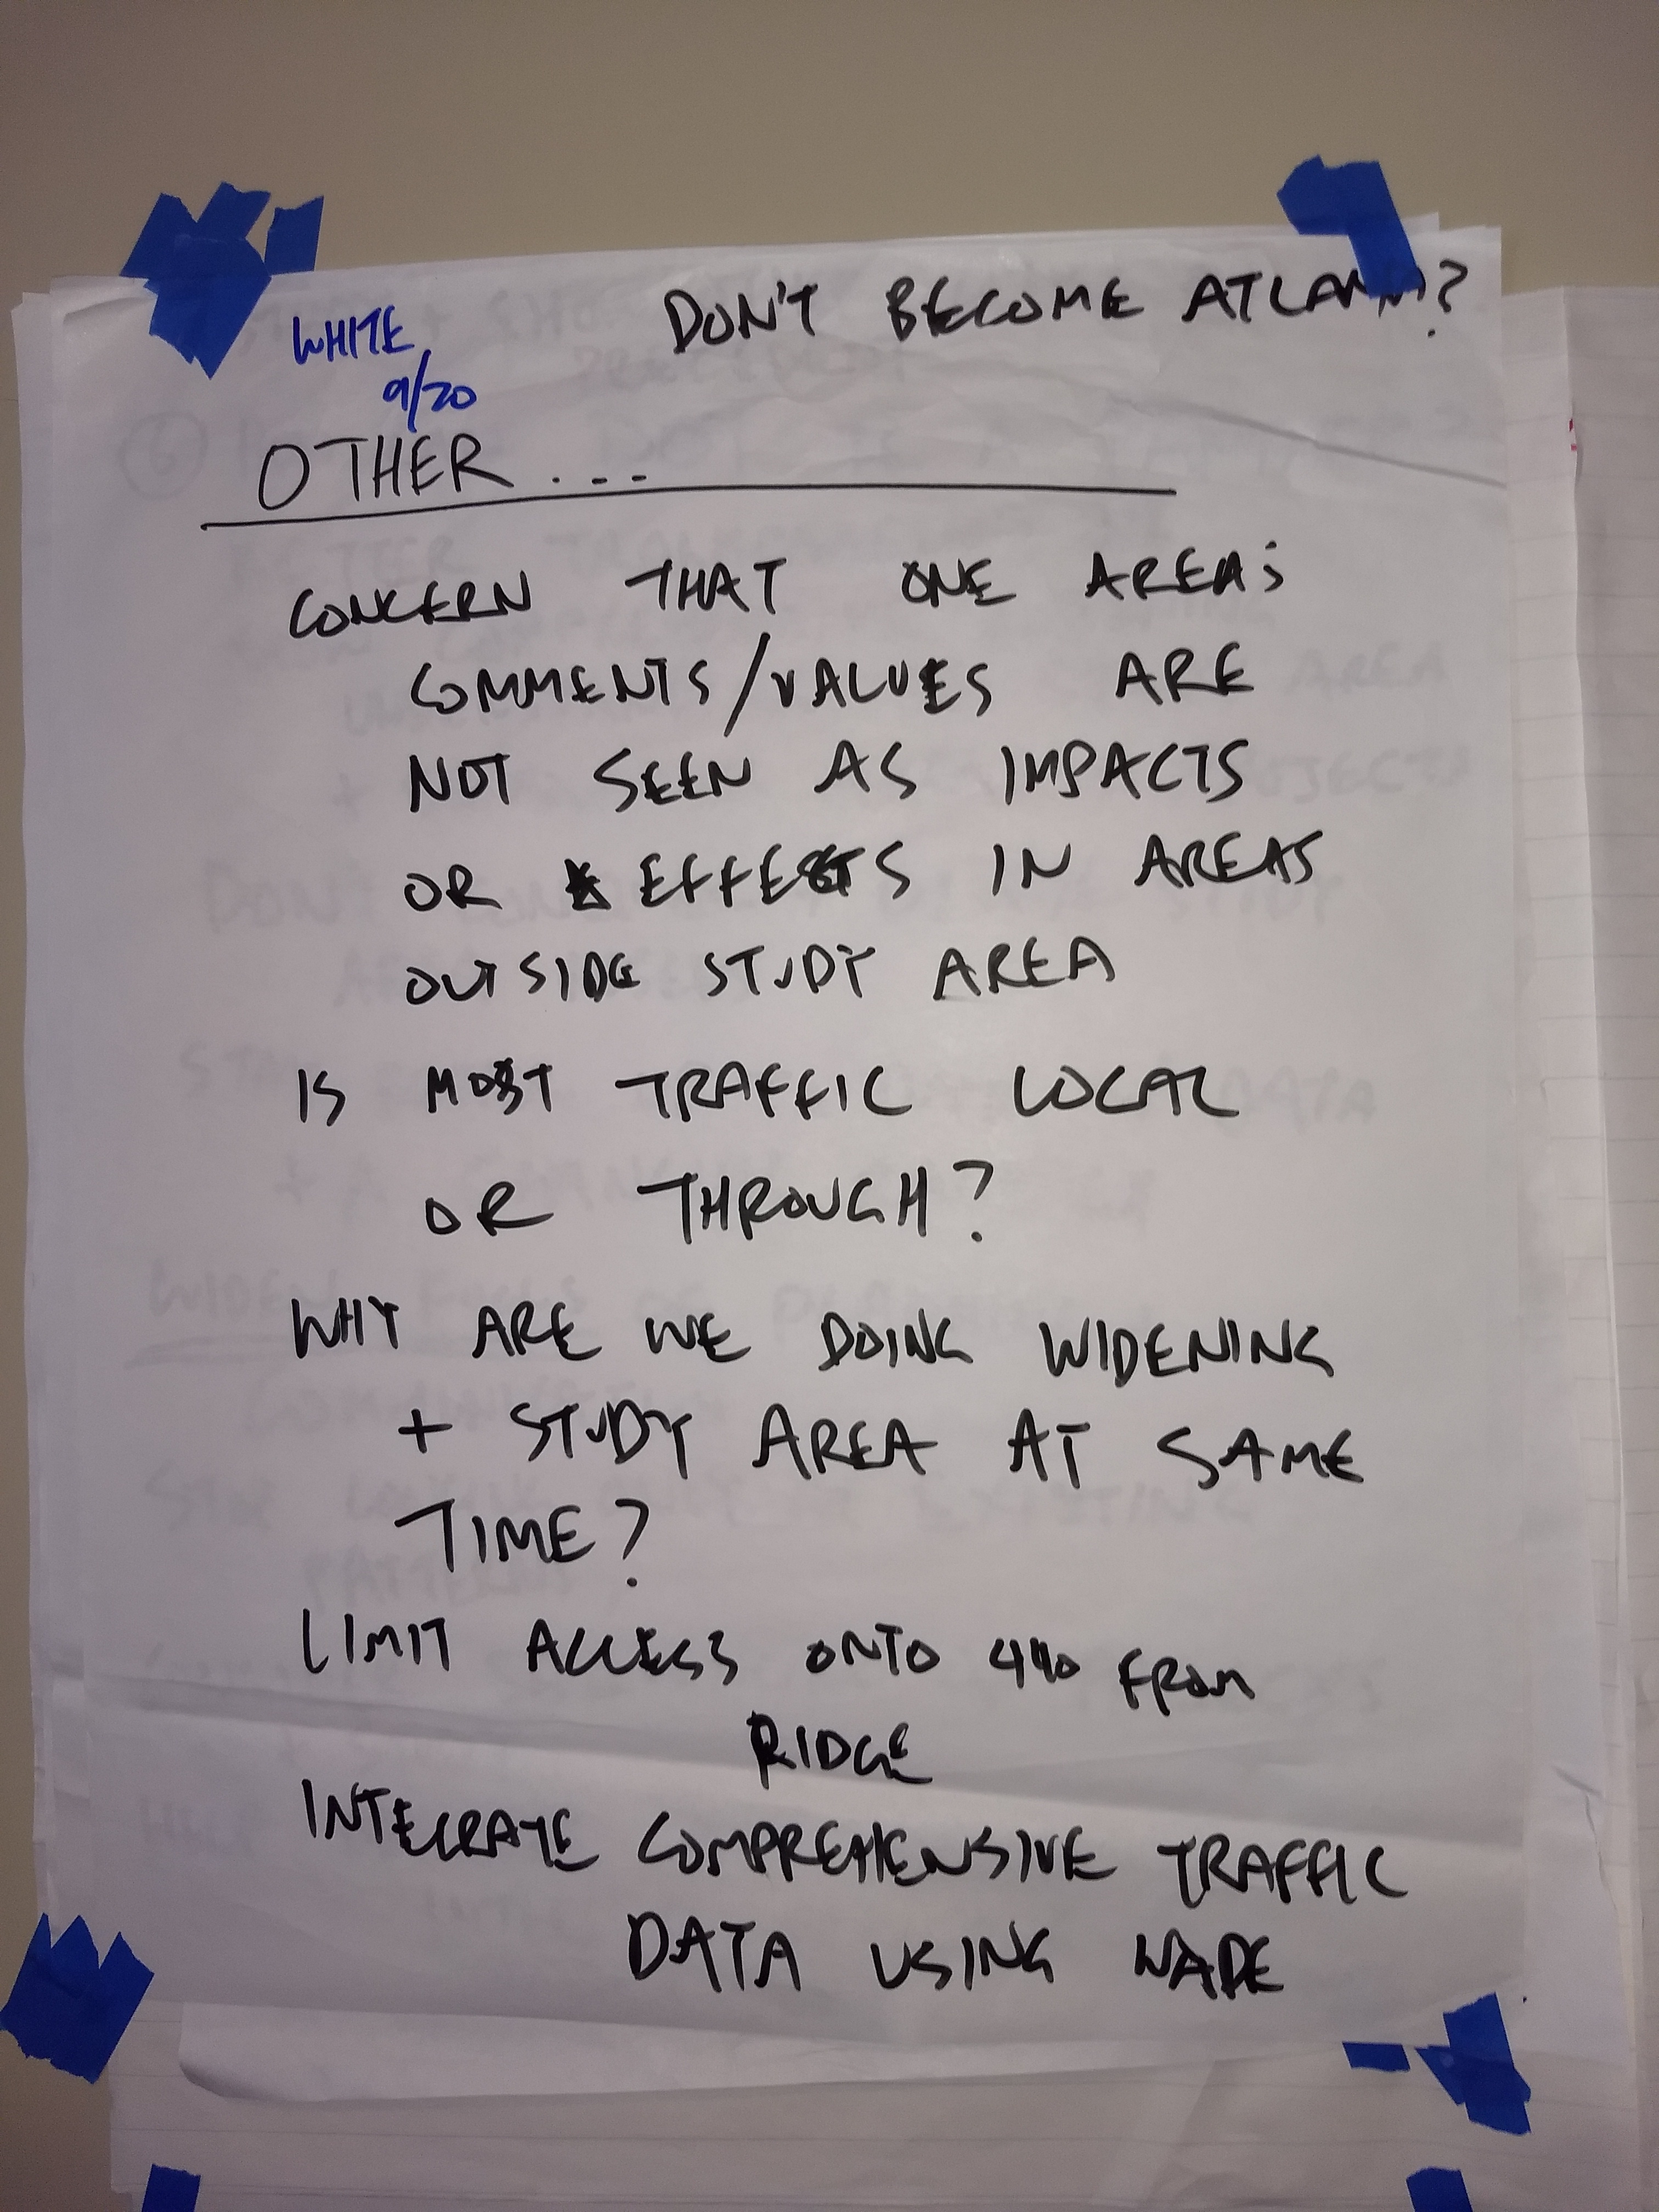 DON'T BECOME ATLANTA?
WHITE
9/20
OTHER ...
CONCERN THAT ONE AREA'S
COMMENTS/VALUES ARE
NOT SEEN AS IMPACTS
OR EFFECTS IN AREAS
OUTSIDE STUDY AREA
IS MOST TRAFFIC LOCAL
OR THROUGH?
WHY ARE WE DOING WIDENING
+ STUDY AREA AT SAME
TIME?
LIMIT ACCESS ONTO 440 FROM
RIDGE
INTEGRATE COMPREHENSIVE TRAFFIC
DATA USING WADE